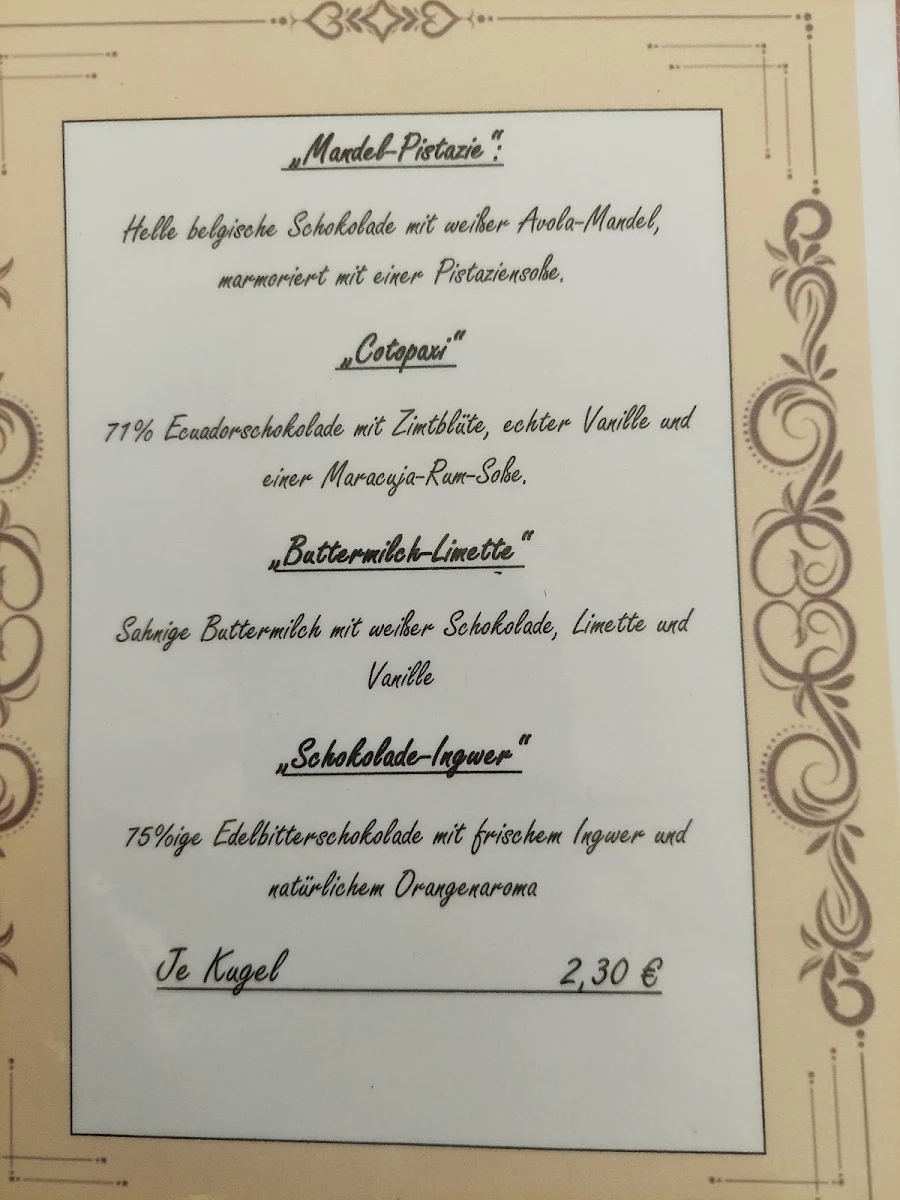 „Mandel-Pistazie“:
Helle belgische Schokolade mit weißer Avola-Mandel,
marmoriert mit einer Pistaziensoße.
„Cotopaxi“
71% Ecuadorschokolade mit Zimtblüte, echter Vanille und
einer Maracuja-Rum-Soße.
„Buttermilch-Limette“
Sahnige Buttermilch mit weißer Schokolade, Limette und
Vanille
„Schokolade-Ingwer“
75%ige Edelbitterschokolade mit frischem Ingwer und
natürlichem Orangenaroma
Je Kugel 2,30 €